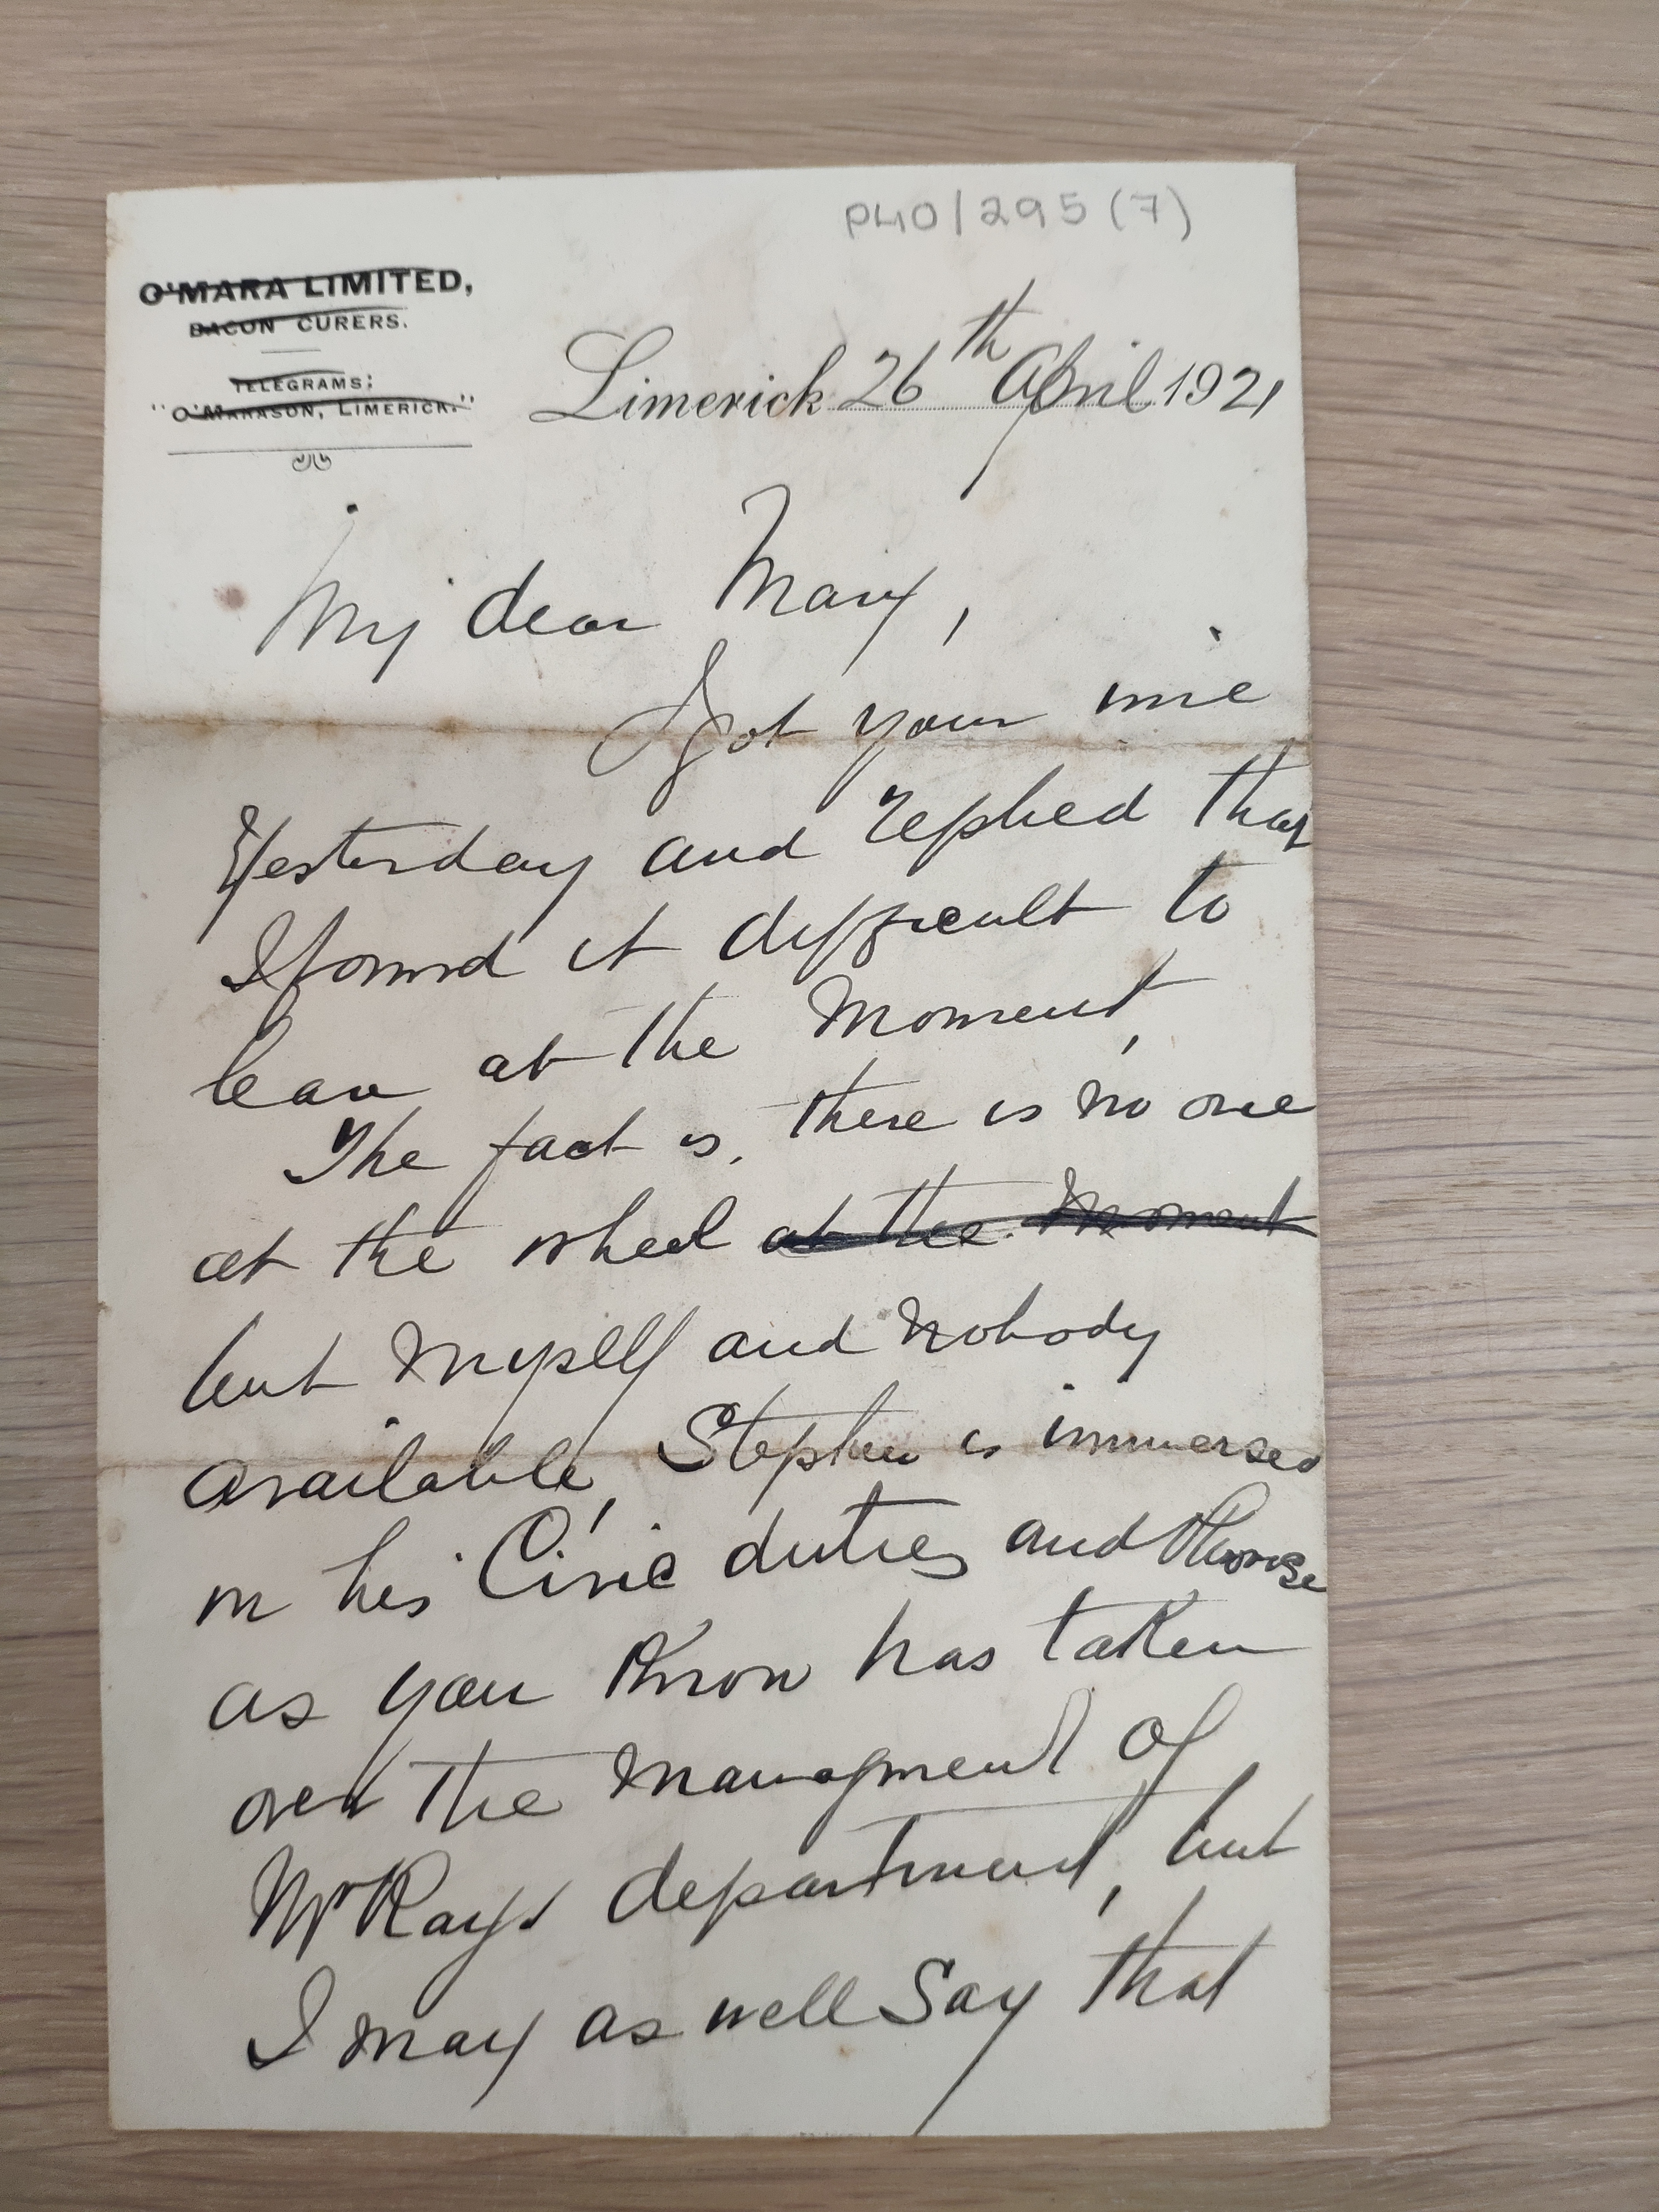 P40/295(7)
O'MARA LIMITED,
BACON CURERS.
TELEGRAMS:
"O'MARASON, LIMERICK."
Limerick 26th April 1921
My dear Mary,
Got your wire
Yesterday and replied that
I found it difficult to
leave at the moment,
The fact is, there is no one
at the wheel at the moment
but myself and nobody
available, Stephen is immersed
in his Civic duties and
as you know has taken
over the managment of
McKays department, but
I may as well say that